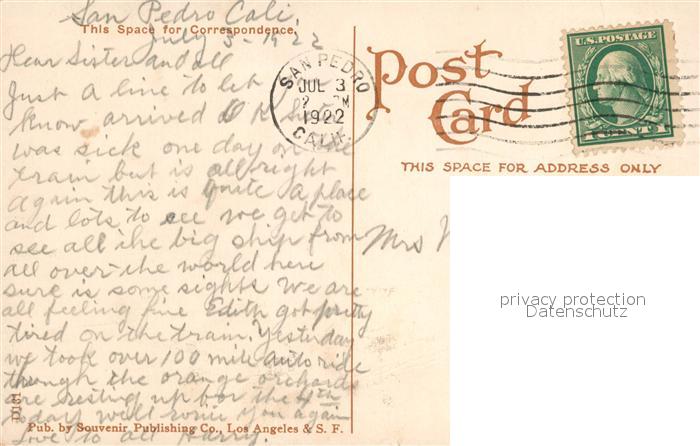 San Pedro Cali,
This Space for Correspondence.
July 3 - 1922
Dear Sister and all
Just a line to let you
know arrived O K
was sick one day on the
train but is all right
again this is quite a place
and lots to see we get to
see all the big ship from
all over the world here
sure is some sights we are
all feeling fine Edith got pretty
tired on the train. Yesterday
we took over 100 mile auto ride
through the orange orchards
are resting up for the 4th
today well some you again
Love to all Harry.
D 181
Pub. by Souvenir Publishing Co., Los Angeles & S. F.
SAN PEDRO
JUL 3
M
1922
CALIF.
Post
Card
U.S. POSTAGE
1 CENT 1
THIS SPACE FOR ADDRESS ONLY
Mrs
privacy protection
Datenschutz